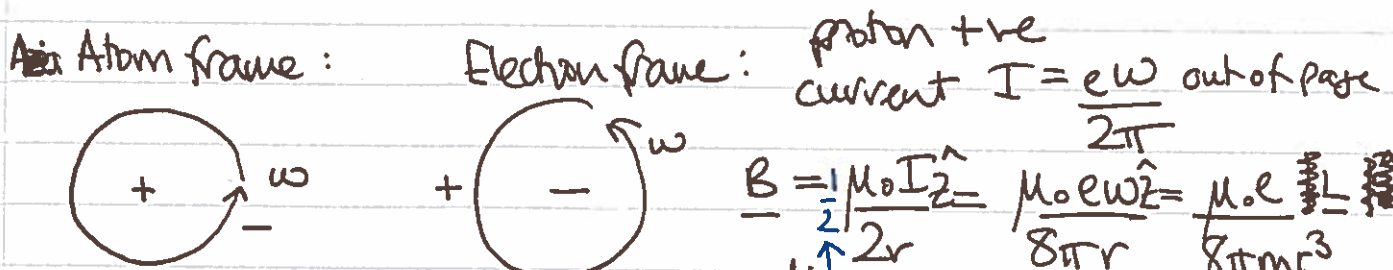 Atom frame: Electron frame: proton +ve
current I = eω/2π out of page
+ ω − + − ω B = 1/2 μ₀I/2r ẑ = μ₀eω/8πr ẑ = μ₀e/8πmr³ L